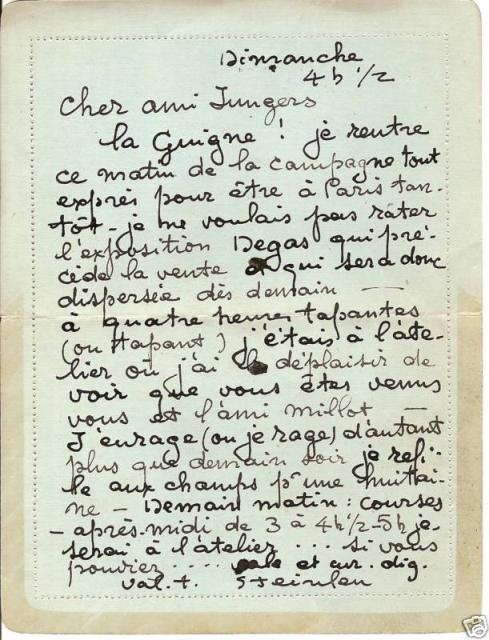 Dimanche
4h 1/2
Cher ami Jungers
la Guigne ! je rentre
ce matin de la campagne tout
exprès pour être à Paris tan-
tôt - je ne voulais pas rater
l'exposition Degas qui pré-
cède la vente et qui sera donc
dispersée dès demain —
à quatre heures tapantes
(ou tapant) j'étais à l'ate-
lier où j'ai le déplaisir de
voir que vous êtes venus
vous et l'ami Millot —
J'enrage (ou je rage) d'autant
plus que demain soir je refi-
le aux champs pr une huitai-
ne - Demain matin : courses
- après-midi de 3 à 4h 1/2 - 5h je
serai à l'atelier ... si vous
pouviez .... vale et cur. dig.
val. t. Steinlen